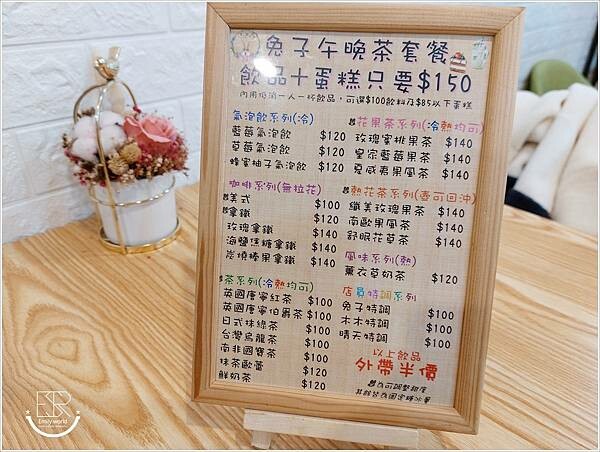 兔子午晚茶套餐
飲品+蛋糕只要$150
內用低消一人一杯飲品,可選$100飲料及$85以下蛋糕
氣泡飲系列(冷)
藍莓氣泡飲 $120
草莓氣泡飲 $120
蜂蜜柚子氣泡飲 $120
咖啡系列(無拉花)
美式 $100
拿鐵 $120
玫瑰拿鐵 $140
海鹽焦糖拿鐵 $140
炭燒榛果拿鐵 $140
茶系列(冷熱均可)
英國唐寧紅茶 $100
英國唐寧伯爵茶 $100
日式抹綠茶 $100
台灣烏龍茶 $100
南非國寶茶 $100
抹茶歐蕾 $120
鮮奶茶 $120
花果茶系列(冷熱均可)
玫瑰蜜桃果茶 $140
皇家藍莓果茶 $140
夏威夷果風茶 $140
熱花茶系列(壺可回沖)
纖美玫瑰果茶 $140
南歐果風茶 $140
舒眠花草茶 $140
風味系列(熱)
薰衣草奶茶 $120
店員特調系列
兔子特調 $100
木木特調 $100
晴天特調 $100
以上飲品
外帶半價
為可調整甜度
其餘皆為固定糖冰量
ER
Emily world